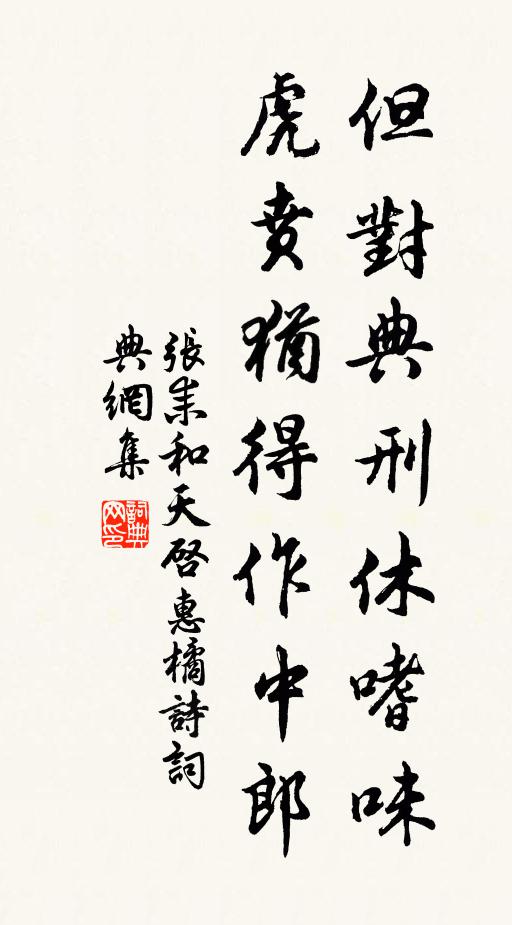 但對典刑休嗜味
虎賁猶得作中郎
張耒和天啓惠橘詩詞
典網集
詞典
网印